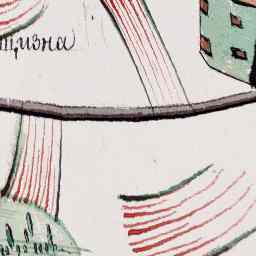 тщизна